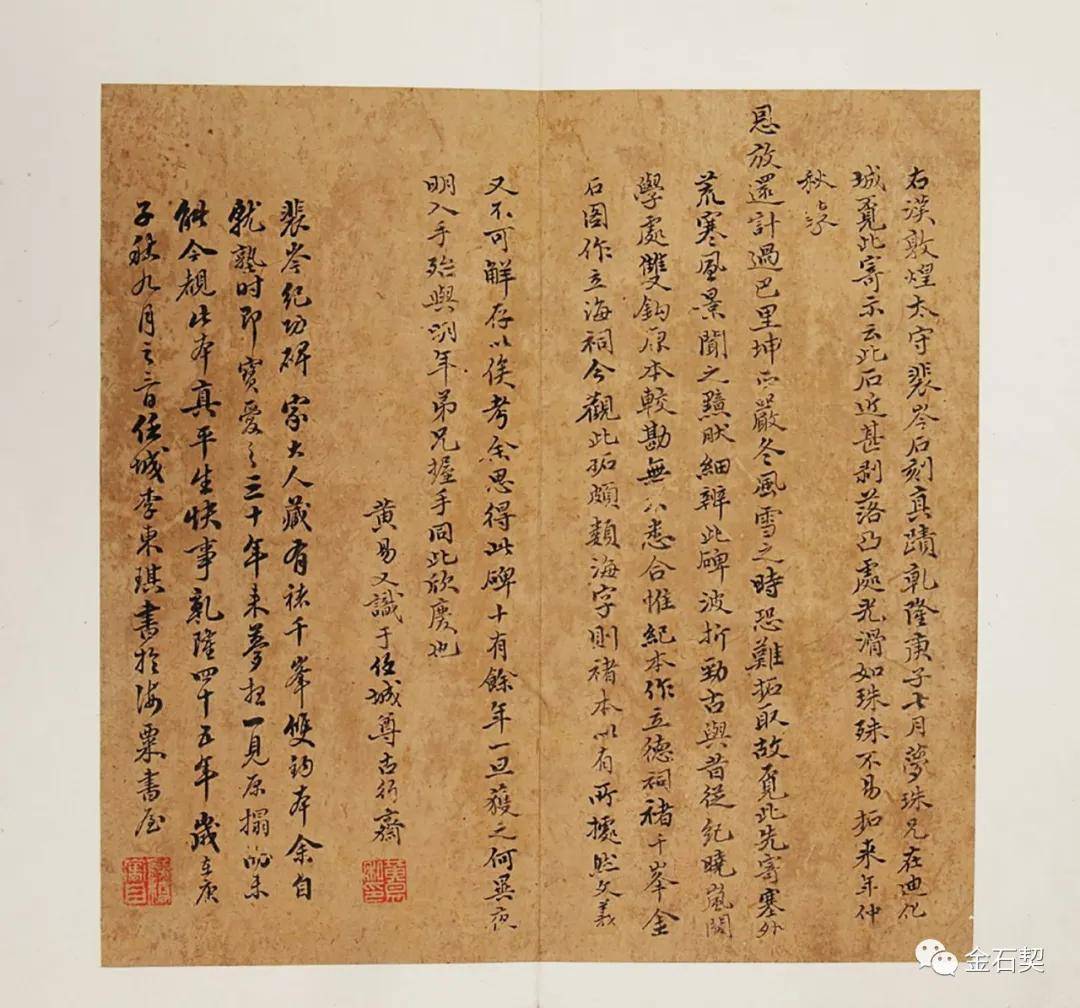 右漢敦煌太守裴岑石刻真蹟乾隆庚子七月夢珠兄在迪化
城覓此寄示云此石近甚剥落凸處光滑如珠殊不易拓来年仲
秋
恩放還計過巴里坤正嚴冬風雪之時恐難拓取故覓此先寄塞外
荒寒風景聞之黯然細辨此碑波折勁古與昔從紀曉嵐閣
學處雙鈎原本較勘無不悉合惟紀本作立德祠褚千峯金
石圖作立海祠今觀此拓頗類海字則褚本似有所據然文義
又不可解存以俟考余思得此碑十有餘年一旦獲之何異夜
明入手殆與明年弟兄握手同此欣慶也
黃易又識于任城尊古行齋
裴岑紀功碑家大人藏有褚千峯雙鈎本余自
就塾时即寶愛之三十年来夢想一見原搨而未
能今覩此本真平生快事乾隆四十五年歲在庚
子秋九月之二日任城李東琪書於海粟書屋
金石契